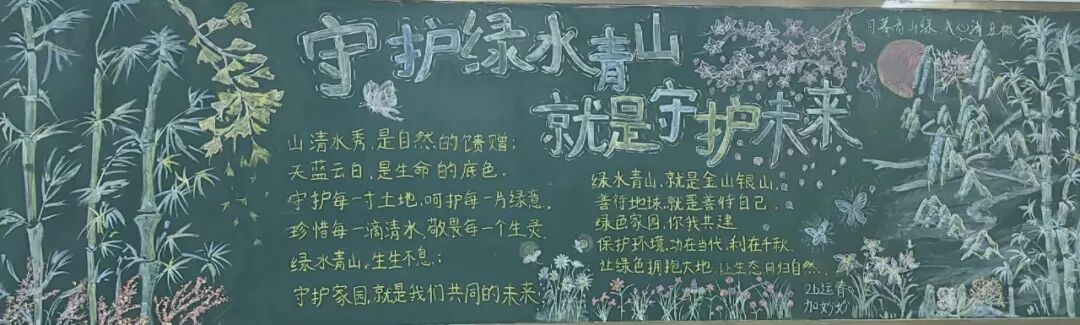 守护绿水青山
就是守护未来
山清水秀,是自然的馈赠;
天蓝云白,是生命的底色。
守护每一寸土地,呵护每一片绿意。
珍惜每一滴清水,敬畏每一个生灵
绿水青山,生生不息,;
守护家园,就是我们共同的未来
绿水青山,就是金山银山,
善待地球,就是善待自己.
绿色家园,你我共建
保护环境,功在当代,利在千秋
让绿色拥抱大地,让生态回归自然.